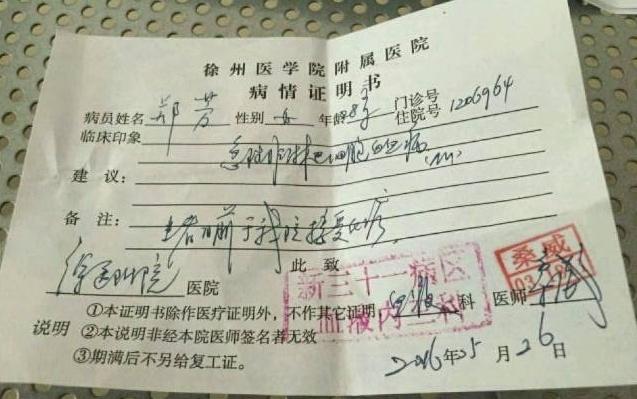 徐州医学院附属医院
病情证明书
病员姓名 郑芳 性别 女 年龄 8岁 门诊号 住院号 1206964
临床印象 急性非淋巴细胞白血病 (M)
建议:
备注: 患者目前于我院接受化疗
此致
徐医附院 医院
新三十一病区
血液内科
桑威
科 医师
说明 ①本证明书除作医疗证明外,不作其它证明
②本说明非经本院医师签名者无效
③期满后不另给复工证。
2016年5月26日